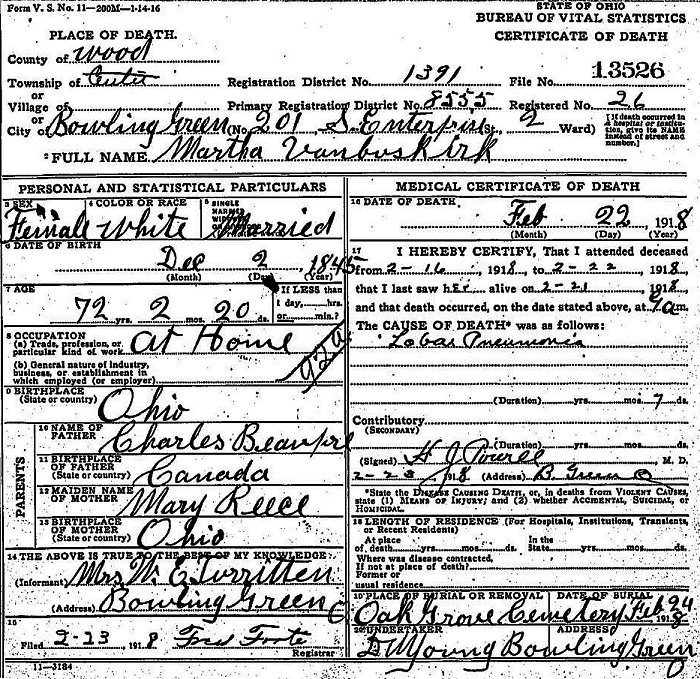 Form V. S. No. 11—200M—1-14-16
STATE OF OHIO
BUREAU OF VITAL STATISTICS
CERTIFICATE OF DEATH
PLACE OF DEATH.
County of Wood
Township of Center Registration District No. 1391 File No. 13526
or
Village of Primary Registration District No. 8555 Registered No. 26
or
City of Bowling Green (No. 201 S. Enterprise St., 2 Ward) [If death occurred in a hospital or institution, give its NAME instead of street and number.]
2 FULL NAME Martha Vanboskirk
PERSONAL AND STATISTICAL PARTICULARS
3 SEX 4 COLOR OR RACE 5 SINGLE MARRIED
Female White Married
6 DATE OF BIRTH
Dec 2 1845
(Month) (Day) (Year)
7 AGE If LESS than
1 day, hrs.
72 yrs. 2 mos. 20 ds. or min.?
8 OCCUPATION
(a) Trade, profession, or
particular kind of work At Home
(b) General nature of industry,
business, or establishment in
which employed (or employer)
92a
9 BIRTHPLACE
(State or country) Ohio
PARENTS
10 NAME OF
FATHER Charles Beaupre
11 BIRTHPLACE
OF FATHER
(State or country) Canada
12 MAIDEN NAME
OF MOTHER Mary Reece
13 BIRTHPLACE
OF MOTHER
(State or country) Ohio
14 THE ABOVE IS TRUE TO THE BEST OF MY KNOWLEDGE
(Informant) Mrs. W. E.
(Address) Bowling Green O
15
Filed 2-23, 1918 Foote
Registrar
11—3184
MEDICAL CERTIFICATE OF DEATH
16 DATE OF DEATH
Feb 22 1918
(Month) (Day) (Year)
17 I HEREBY CERTIFY, That I attended deceased
from 2-16, 1918, to 2-22 1918
that I last saw her alive on 2-21 1918
and that death occurred, on the date stated above, at m.
The CAUSE OF DEATH* was as follows:
Lobar Pneumonia
(Duration) yrs. mos. 7 ds.
Contributory
(SECONDARY)
(Duration) yrs. mos. ds.
(Signed) H J Powell M. D.
2-23 1918 (Address) B. Green O
*State the DISEASE CAUSING DEATH, or, in deaths from VIOLENT CAUSES,
state (1) MEANS OF INJURY; and (2) whether ACCIDENTAL, SUICIDAL, or
HOMICIDAL.
18 LENGTH OF RESIDENCE (For Hospitals, Institutions, Transients,
or Recent Residents)
At place In the
of death yrs. mos. ds. State yrs. mos. ds.
Where was disease contracted,
If not at place of death?
Former or
usual residence
19 PLACE OF BURIAL OR REMOVAL DATE OF BURIAL
Oak Grove Cemetery Feb 24 1918
20 UNDERTAKER ADDRESS
Young Bowling Green O